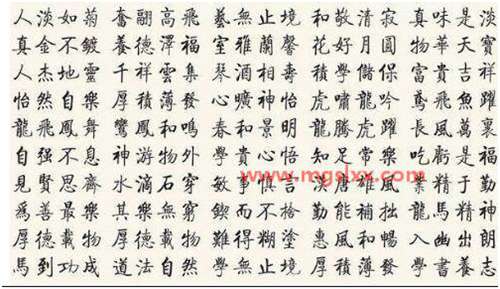 人淡如菊奮翮高飛藝無止境和敬清寂真味是淡
真金不鍍養德澤福室雅蘭馨花好月圓物華天寶
人杰地靈千祥雲集琴酒相壽積學儲保富貴吉祥
怡然自樂厚積薄發心曠神怡虎嘯龍吟鳶飛魚躍
龍飛鳳舞鸞鳳和鳴春和景明龍騰虎躍長風萬裏
自强不息神游物外學貴心悟知足常樂吃虧是福
見賢思齊水滴石穿敏事慎言漢唐雄風業精于勤
為善最樂其樂無窮鍥而不捨勤能補拙龍馬精神
厚德載物厚德載物難得糊塗惠風和暢入幽出朗
馬到功成道法自然學無止境厚積薄發學書養志
www.mgslxx.com